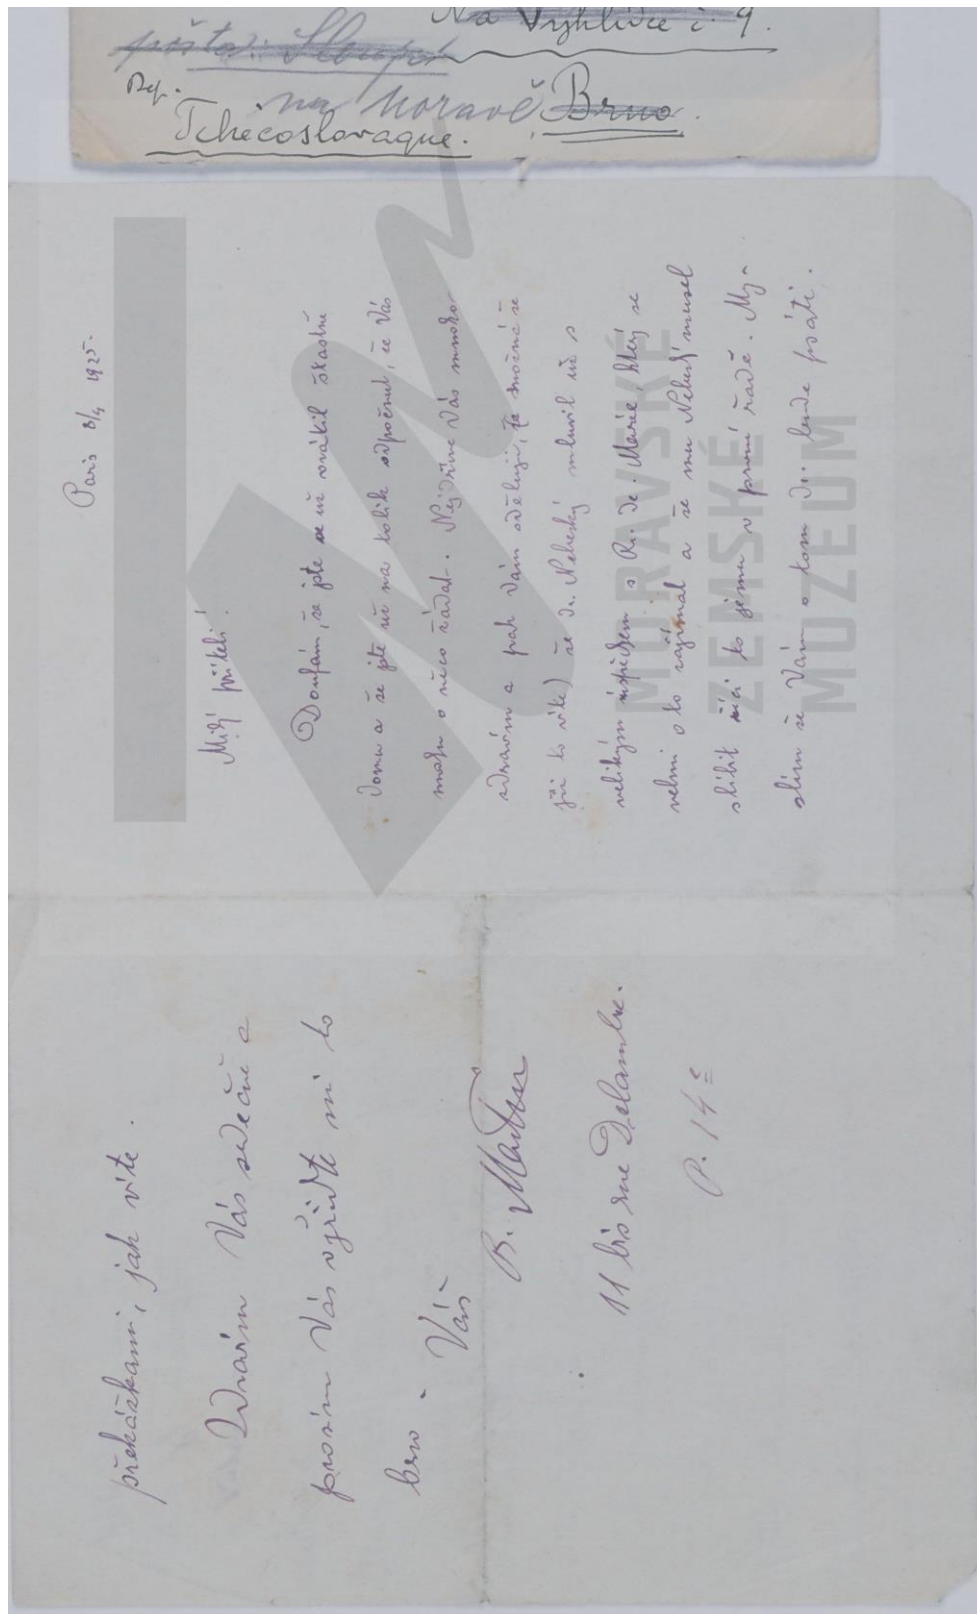 Na Vyhlídce č. 9.
poštov: Sloup
na Moravě, Brno.
Rep.
Tchecoslovaque.
Paris 8/4 1925.
Milý příteli!
Doufám, že jste se už vrátil šťastně
domů a že jste už na tolik odpočnul, že Vás
mohu o něco žádat. Nejdříve Vás mnoho
zdravím a pak Vám sděluji, (že možná že
již to víte) že Dr. Nebeský mluvil už s
velikým úspěchem s R. de. Marée, který se
velmi o to zajímal a že mu Nebeský musel
slíbit říci to jemu v první řadě. My-
slím že Vám o tom Dr. bude psáti.
překážkami, jak víte.
Zdravím Vás srdečně a
prosím Vás vyřiďte mi to
brzo.
Váš
B. Martinů
11 bis rue Delambre.
P. 14e
MORAVSKÉ
ZEMSKÉ
MUZEUM